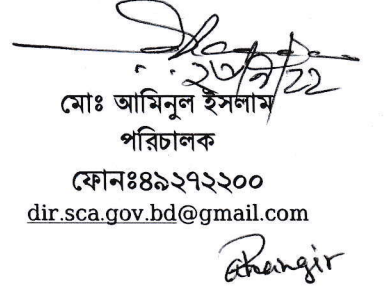 মোঃ আমিনুল ইসলাম
পরিচালক
ফোনঃ৪৯২৭২২০০
dir.sca.gov.bd@gmail.com